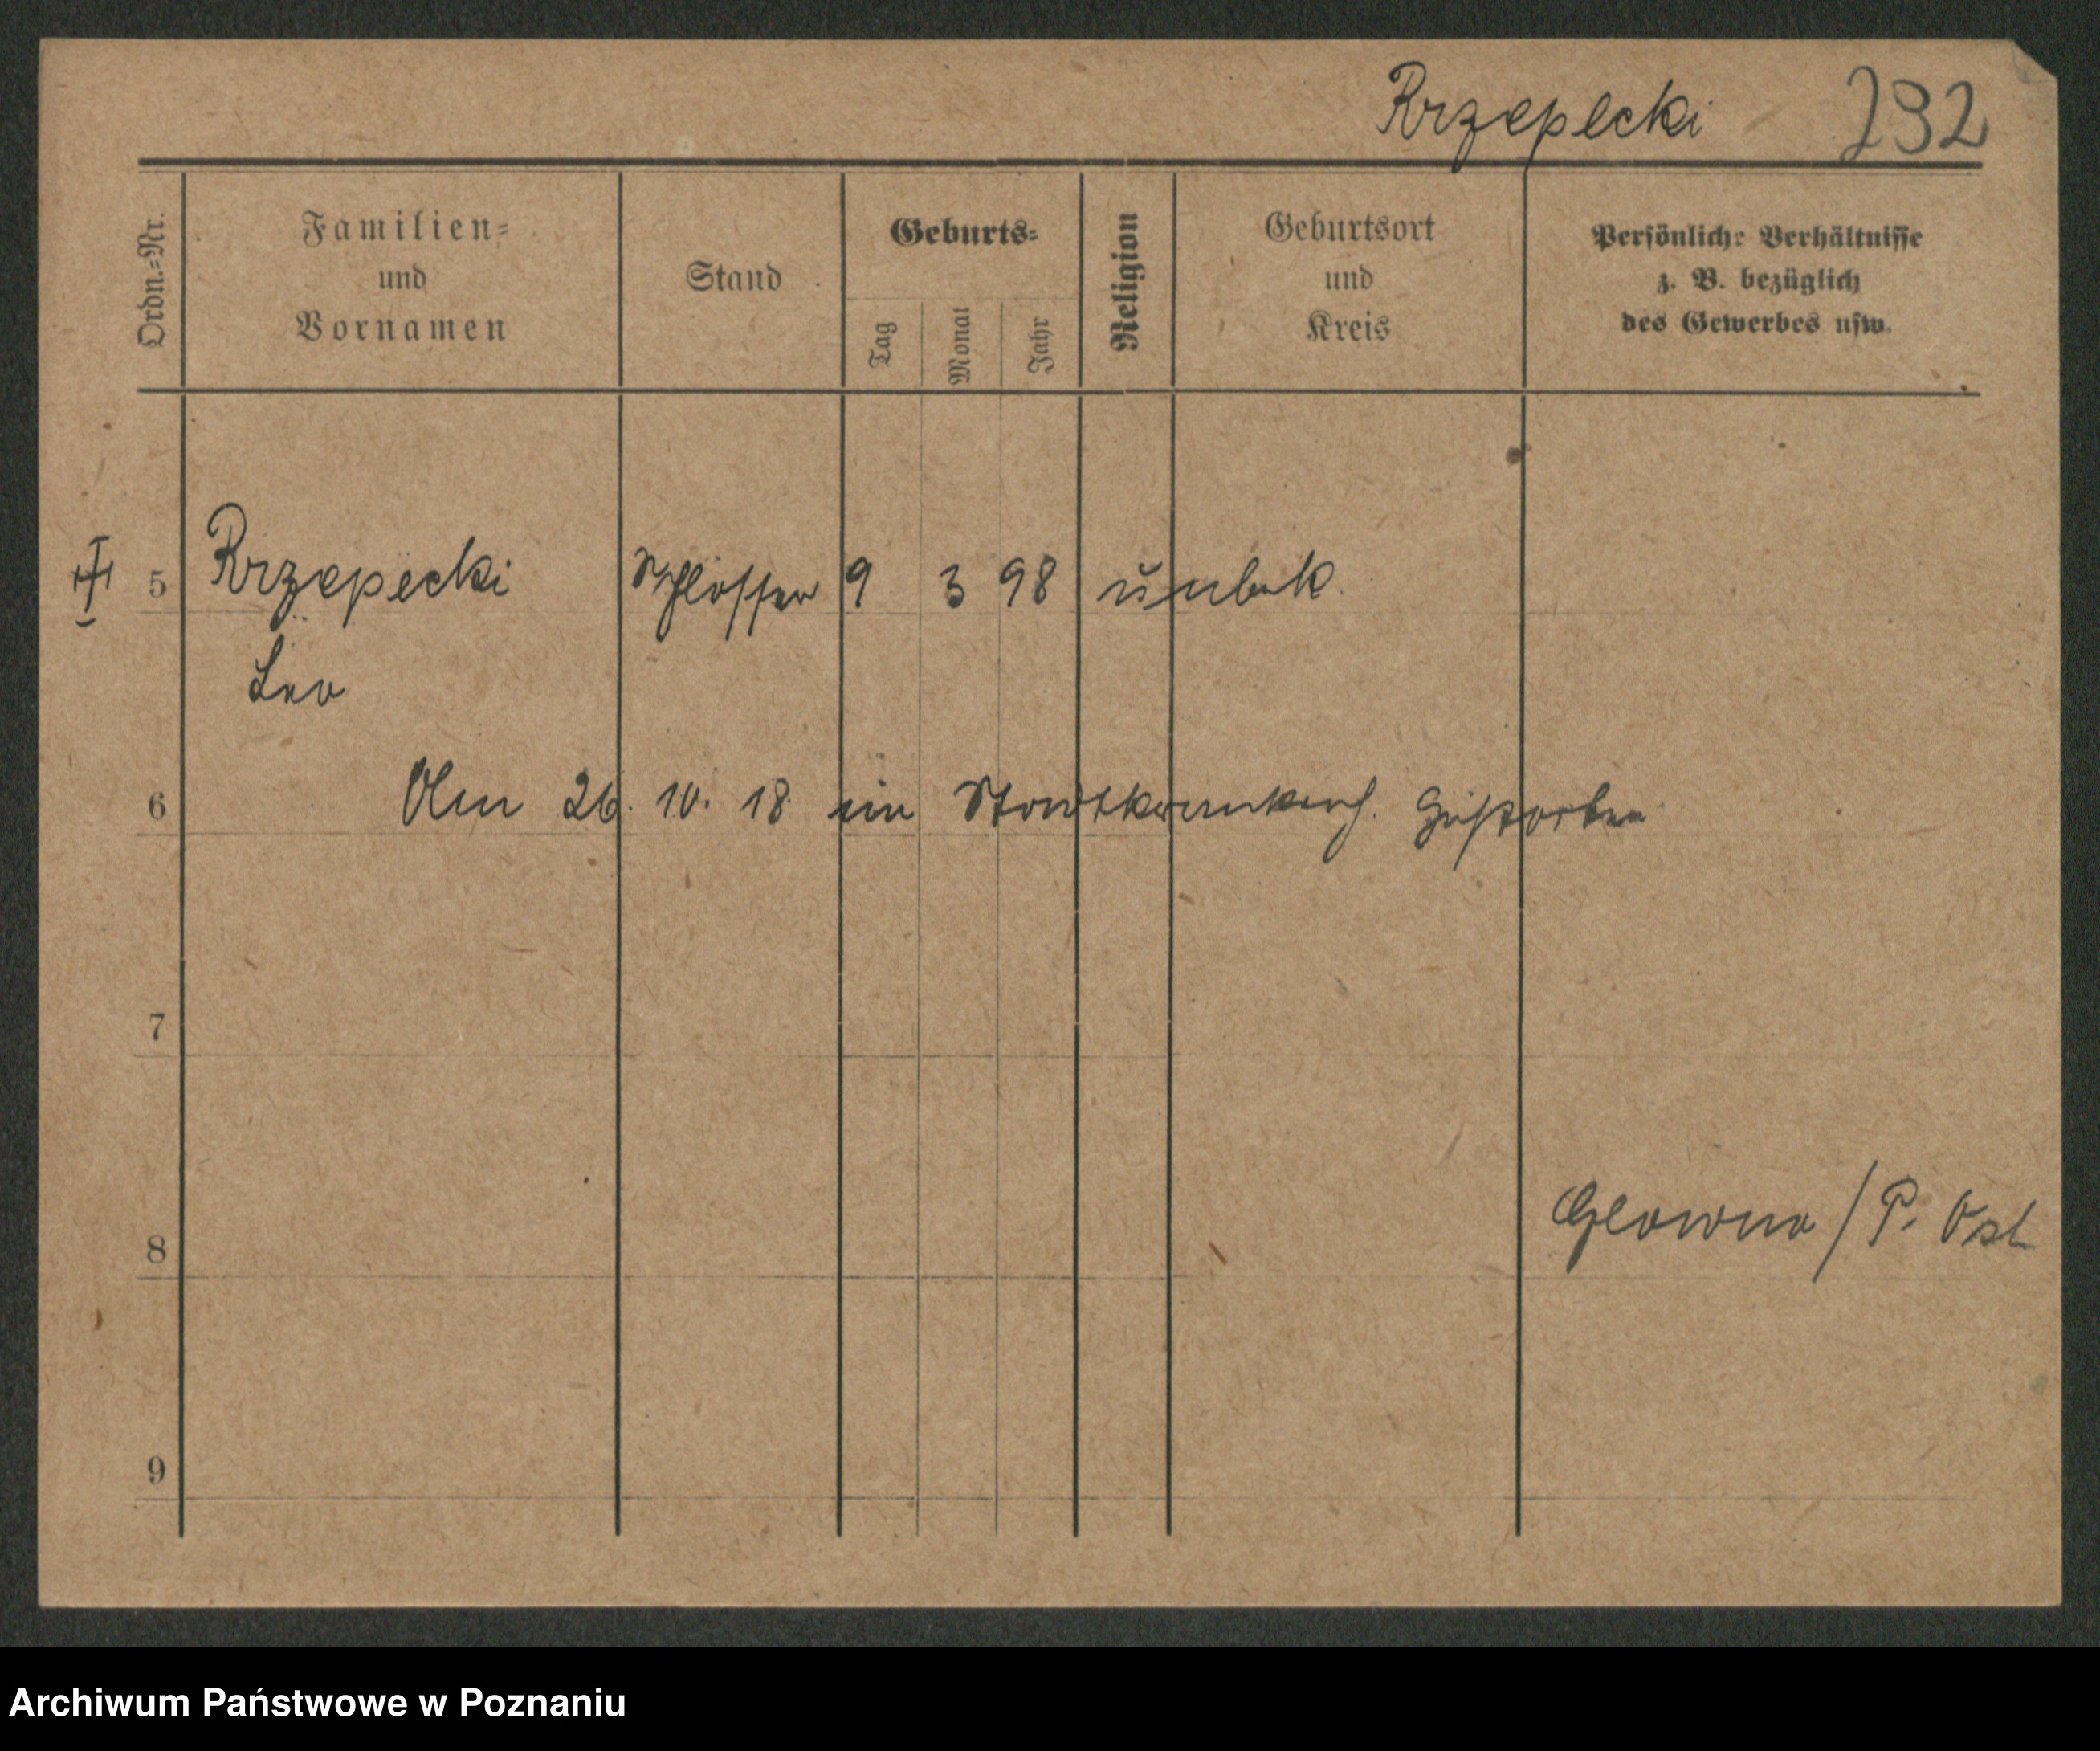 Rrzepecki 232
Ordn.=Nr.
Familien=
und
Vornamen
Stand
Geburts=
Tag
Monat
Jahr
Religion
Geburtsort
und
Kreis
Persönliche Verhältnisse
z. B. bezüglich
des Gewerbes usw.
5 Rrzepecki Schlosser 9 3 98 unbek.
Leo
6 Am 26. 10. 18 im Stadtkrankenh. gestorben
7
8 Glowno / P. Ost
9
Archiwum Państwowe w Poznaniu